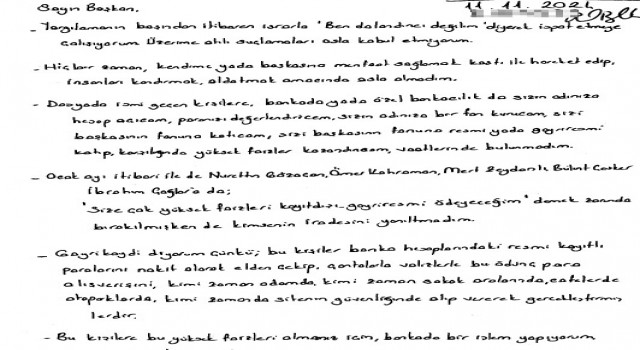 Sayın Başkan.
11.11.2024
- Yargılamanın başından itibaren ısrarla "Ben dolandırıcı değilim" diyerek ispat etmeye
çalışıyorum Üzerime atılı suçlamaları asla kabul etmiyorum.
- Hiçbir zaman, kendime yada başkasına menfaat sağlamak kastı ile hareket edip,
insanları kandırmak, aldatmak amacında asla olmadım.
- Dosyada ismi geçen kişilere, bankada yada özel bankacılık da sizin adınıza
hesap açıcam, paranızı değerlendiricem, sizin adınıza bir fon kurucam, sizi
başkasının fonuna katıcam, sizi başkasının fonuna resmi yada gayriresmi
katıp, karşılığında yüksek faizler kazandırıcam, vaatlerinde bulunmadım.
- Ocak ayı itibari ile de Nurettin Ömer Kahraman, Mert Zeydanlı, Bülent
İbrahim Çağlar'a da;
"Size çok yüksek faizleri kayıtdışı-gayriresmi ödeyeceğim" demek zorunda
bırakılmışken de kimsenin iradesini yanıltmadım.
- Gayrikaydi diyorum Çünkü; bu kişiler banka hesaplarındaki resmi kayıtlı
paralarını nakit olarak elden çekip, çantalarla valizlerle bu ödünç para
alışverişini, kimi zaman odamda, kimi zaman sokak aralarında, cafelerde
otoparklarda, kimi zamanda sitenin güvenliğinde alıp vererek gerçekleştirmiş
lerdir.
- Bu kişilere bu yüksek faizleri almanız için, bankada bir işlem yapıyorum